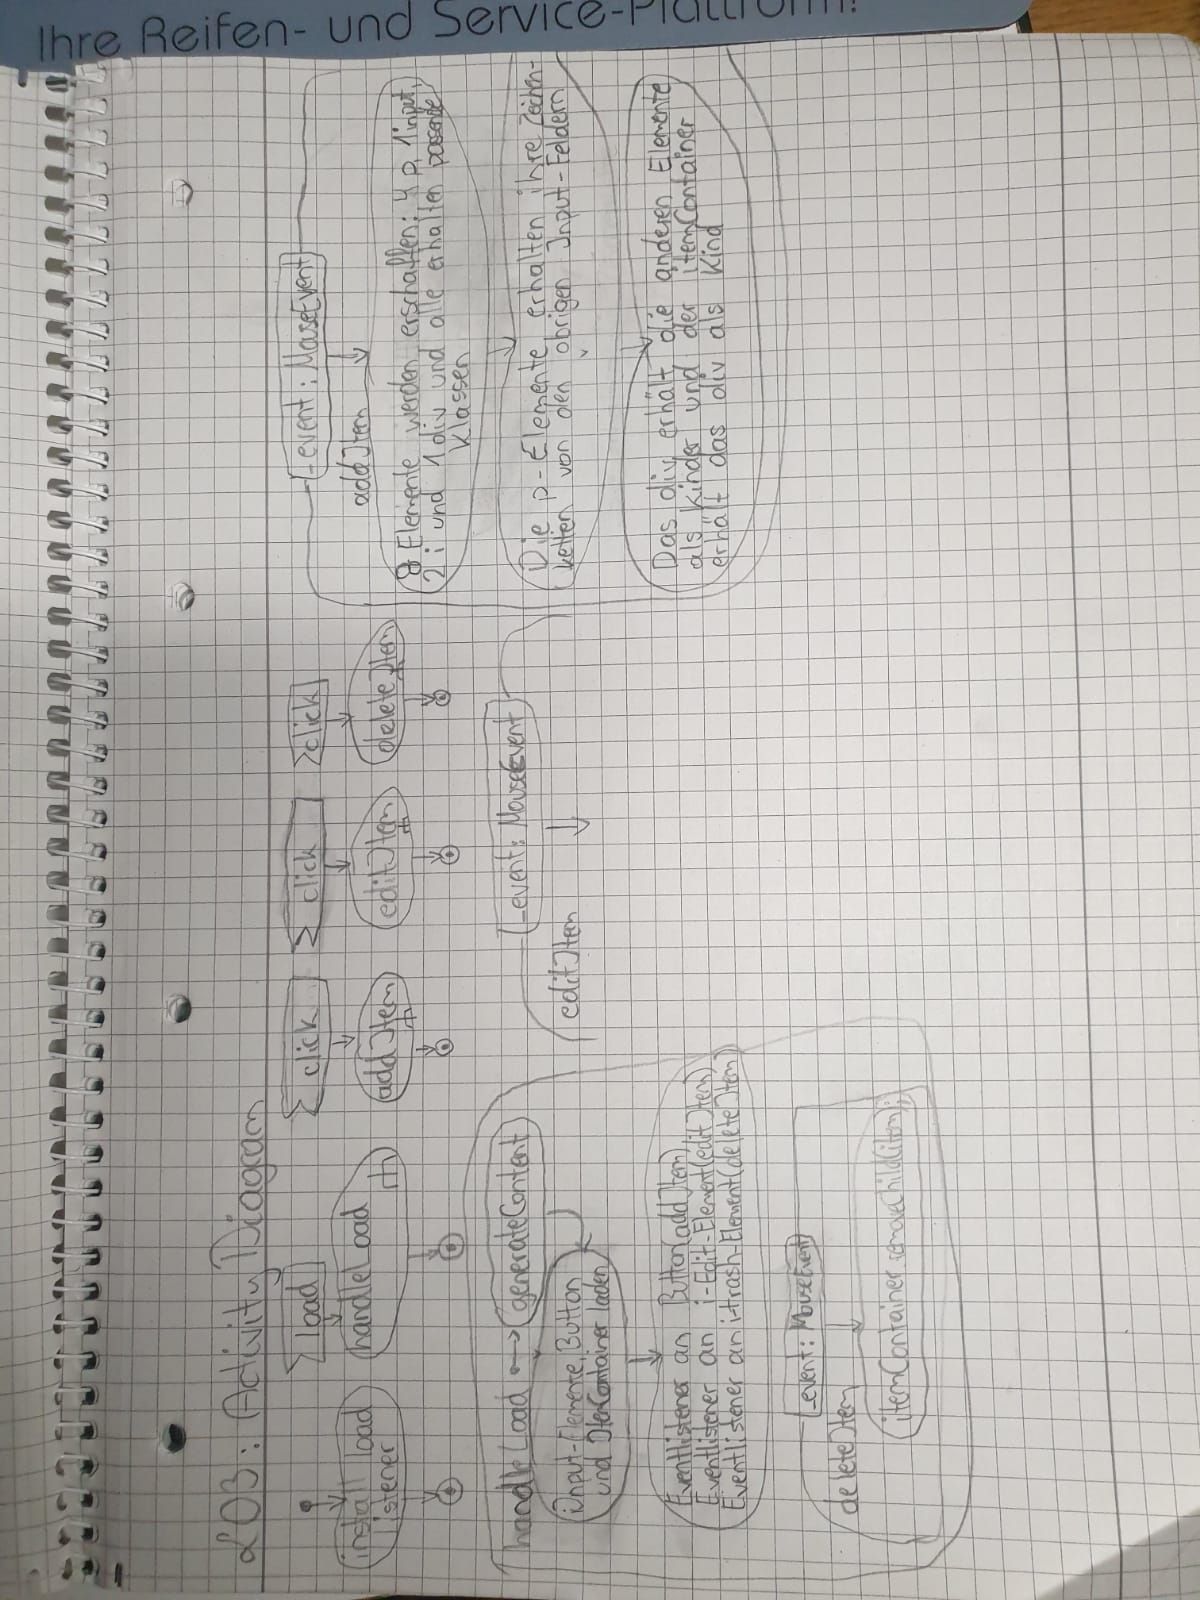 Ihre Reifen- und Service-Plattform!
L03: Activity Diagram
install load
listener
load
handleLoad
click
addItem
click
editItem
click
deleteItem
handleLoad
generateContent
Input-Elemente, Button
und ItemContainer laden
Eventlistener an Button(addItem)
Eventlistener an i-Edit-Element(editItem)
Eventlistener an i-trash-Element(deleteItem)
_event: MouseEvent
deleteItem
itemContainer.removeChild(item);
_event: MouseEvent
editItem
_event: MouseEvent
addItem
8 Elemente werden erschaffen: 4 p, 1 input,
2 i und 1 div und alle erhalten passende
Klassen
Die p-Elemente erhalten ihre Zeichen-
ketten von den übrigen Input-Feldern
Das div erhält die anderen Elemente
als Kinder und der itemContainer
erhält das div als Kind